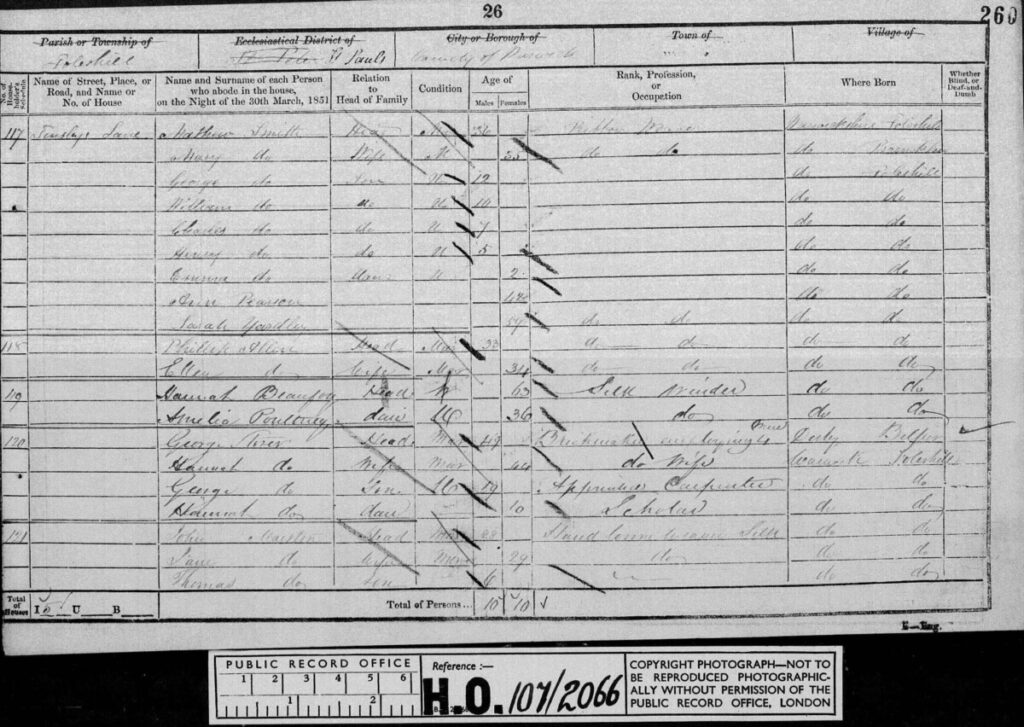 26
260
Parish or Township of
Ecclesiastical District of
City or Borough of
Town of
Village of
Foleshill
St Pauls
County of Warwick
No. of House-holder's Schedule
Name of Street, Place, or Road, and Name or No. of House
Name and Surname of each Person who abode in the house, on the Night of the 30th March, 1851
Relation to Head of Family
Condition
Age of
Males Females
Rank, Profession, or Occupation
Where Born
Whether Blind, or Deaf-and-Dumb
117 Lane Mathew Smith Head Mar 36 Warwickshire Foleshill
Mary do Wife M 33 do do do
George do Son U 12 do Foleshill
William do do U 10 do do
Charles do do U 7 do do
Henry do do U 5 do do
Emma do daur U 2 do do
Ann Pearson do do
Sarah Yardley 59 do do do do
118 Head Mar 33 do do do do
Ellen do Wife Mar 34 do do do do
119 Hannah Head W 63 Silk Winder do do
Amelia Poultney dau U 36 do do do
120 George Head Mar 49 Brickmaker employing 3 men Derby Belper
Hannah do Wife Mar do Wife Warwick Foleshill
George do Son U 19 Apprentice Carpenter do do
Hannah do dau 10 Scholar do do
121 John Head Mar Hand loom weaver Silk do do
Jane do Wife Mar 29 do do do
Thomas do Son 6 do do
Total of Houses I 5 U B Total of Persons... 10 10
E—Eng.
PUBLIC RECORD OFFICE
1 2 3 4 5 6
1 2
Reference :—
H.O. 107/2066
COPYRIGHT PHOTOGRAPH—NOT TO
BE REPRODUCED PHOTOGRAPHIC-
ALLY WITHOUT PERMISSION OF THE
PUBLIC RECORD OFFICE, LONDON